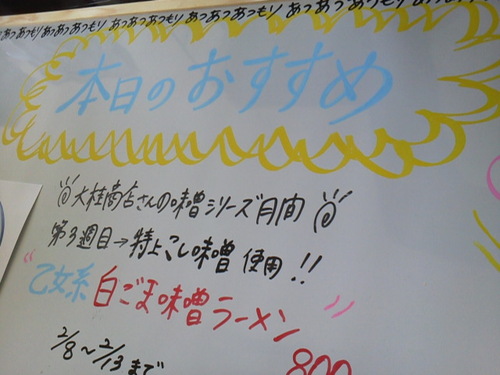 あつあつもり あつあつもり あつあつもり あつあつもり あつあつもり
本日のおすすめ
大桂商店さんの味噌シリーズ月間
第3週目→特上こし味噌 使用!!
“乙女系 白ごま味噌ラーメン”
2/8～2/13まで
800